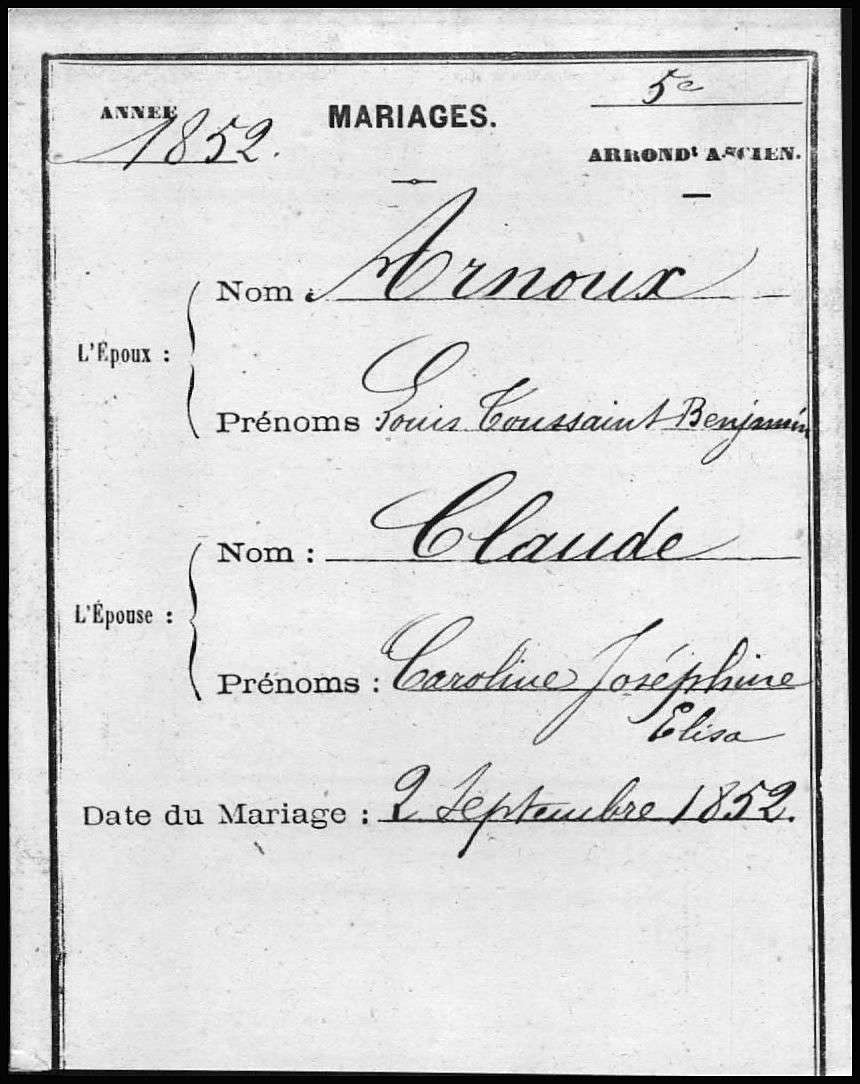 ANNÉE 1852.
MARIAGES.
5e
ARRONDt ANCIEN.
Nom : Arnoux
L'Époux :
Prénoms : Louis Toussaint Benjamin
Nom : Claude
L'Épouse :
Prénoms : Caroline Joséphine
Elisa
Date du Mariage : 2 Septembre 1852.